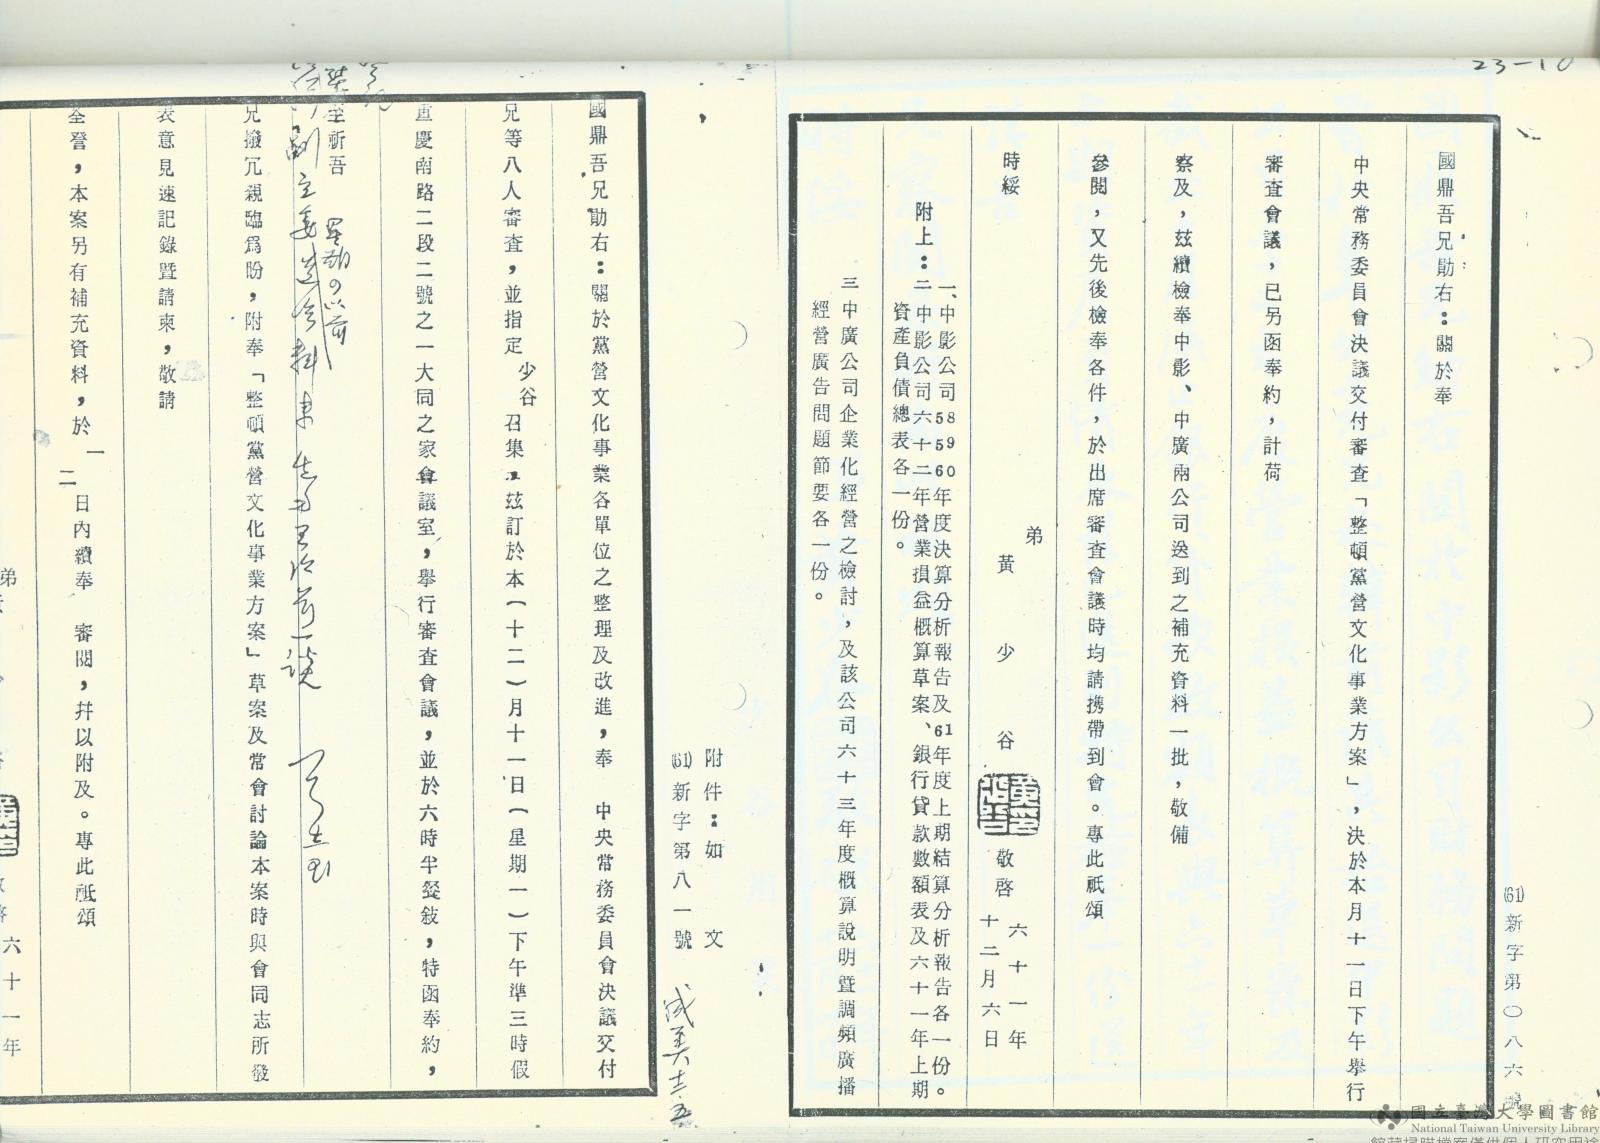 23-10
(61)新字第〇八六號
國鼎吾兄勛右：關於奉
中央常務委員會決議交付審查「整頓黨營文化事業方案」，決於本月十一日下午舉行
審查會議，已另函奉約，計荷
察及，茲續檢奉中影、中廣兩公司送到之補充資料一批，敬備
參閱，又先後檢奉各件，於出席審查會議時均請携帶到會。專此祇頌
時綏
弟
黃少谷
敬啓
六十一年
十二月六日
附上：一、中影公司58 59 60年度決算分析報告及61年度上期結算分析報告各一份。
二中影公司六十二年營業損益概算草案、銀行貸款數額表及六十一年上期
資產負債總表各一份。
三中廣公司企業化經營之檢討，及該公司六十三年度概算說明暨調頻廣播
經營廣告問題節要各一份。
附件：如文
(61)新字第八一號
國鼎吾兄勛右：關於黨營文化事業各單位之整理及改進，奉 中央常務委員會決議交付
兄等八人審查，並指定 少谷 召集，茲訂於本（十二）月十一日（星期一）下午準三時假
重慶南路二段二號之一大同之家會議室，舉行審查會議，並於六時半餐敍，特函奉約，
至祈吾
兄撥冗親臨爲盼，附奉「整頓黨營文化事業方案」草案及常會討論本案時與會同志所發
表意見速記錄暨請柬，敬請
全詧，本案另有補充資料，於一二日內續奉 審閱，幷以附及。專此祗頌
弟
六十一年
國立臺灣大學圖書館
National Taiwan University Library